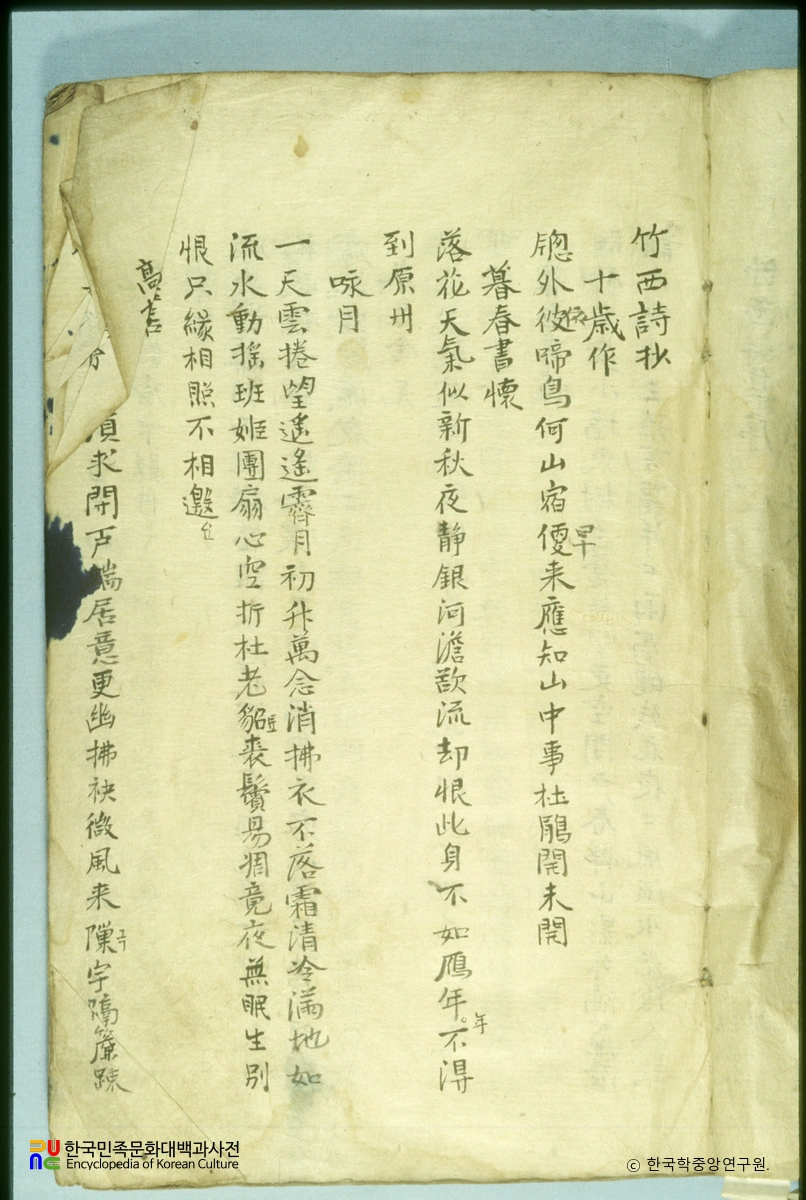 竹西詩抄
十歲作
牕外彼啼鳥何山宿便来應知山中事杜鵑開未開
早
暮春書懷
落花天氣似新秋夜静銀河澹欲流却恨此身不如鴈年年不得
到原州
咏月
一天雲捲望遙遙霽月初升萬念消拂衣不落霜清冷滿地如
流水動搖班姬團扇心空折杜老貂裘鬢易凋竟夜無眠生別
恨只緣相照不相邀
須求閉戶端居意更幽拂袂微風来隟宇隔簾踈
한국민족문화대백과사전
Encyclopedia of Korean Culture
ⓒ 한국학중앙연구원.